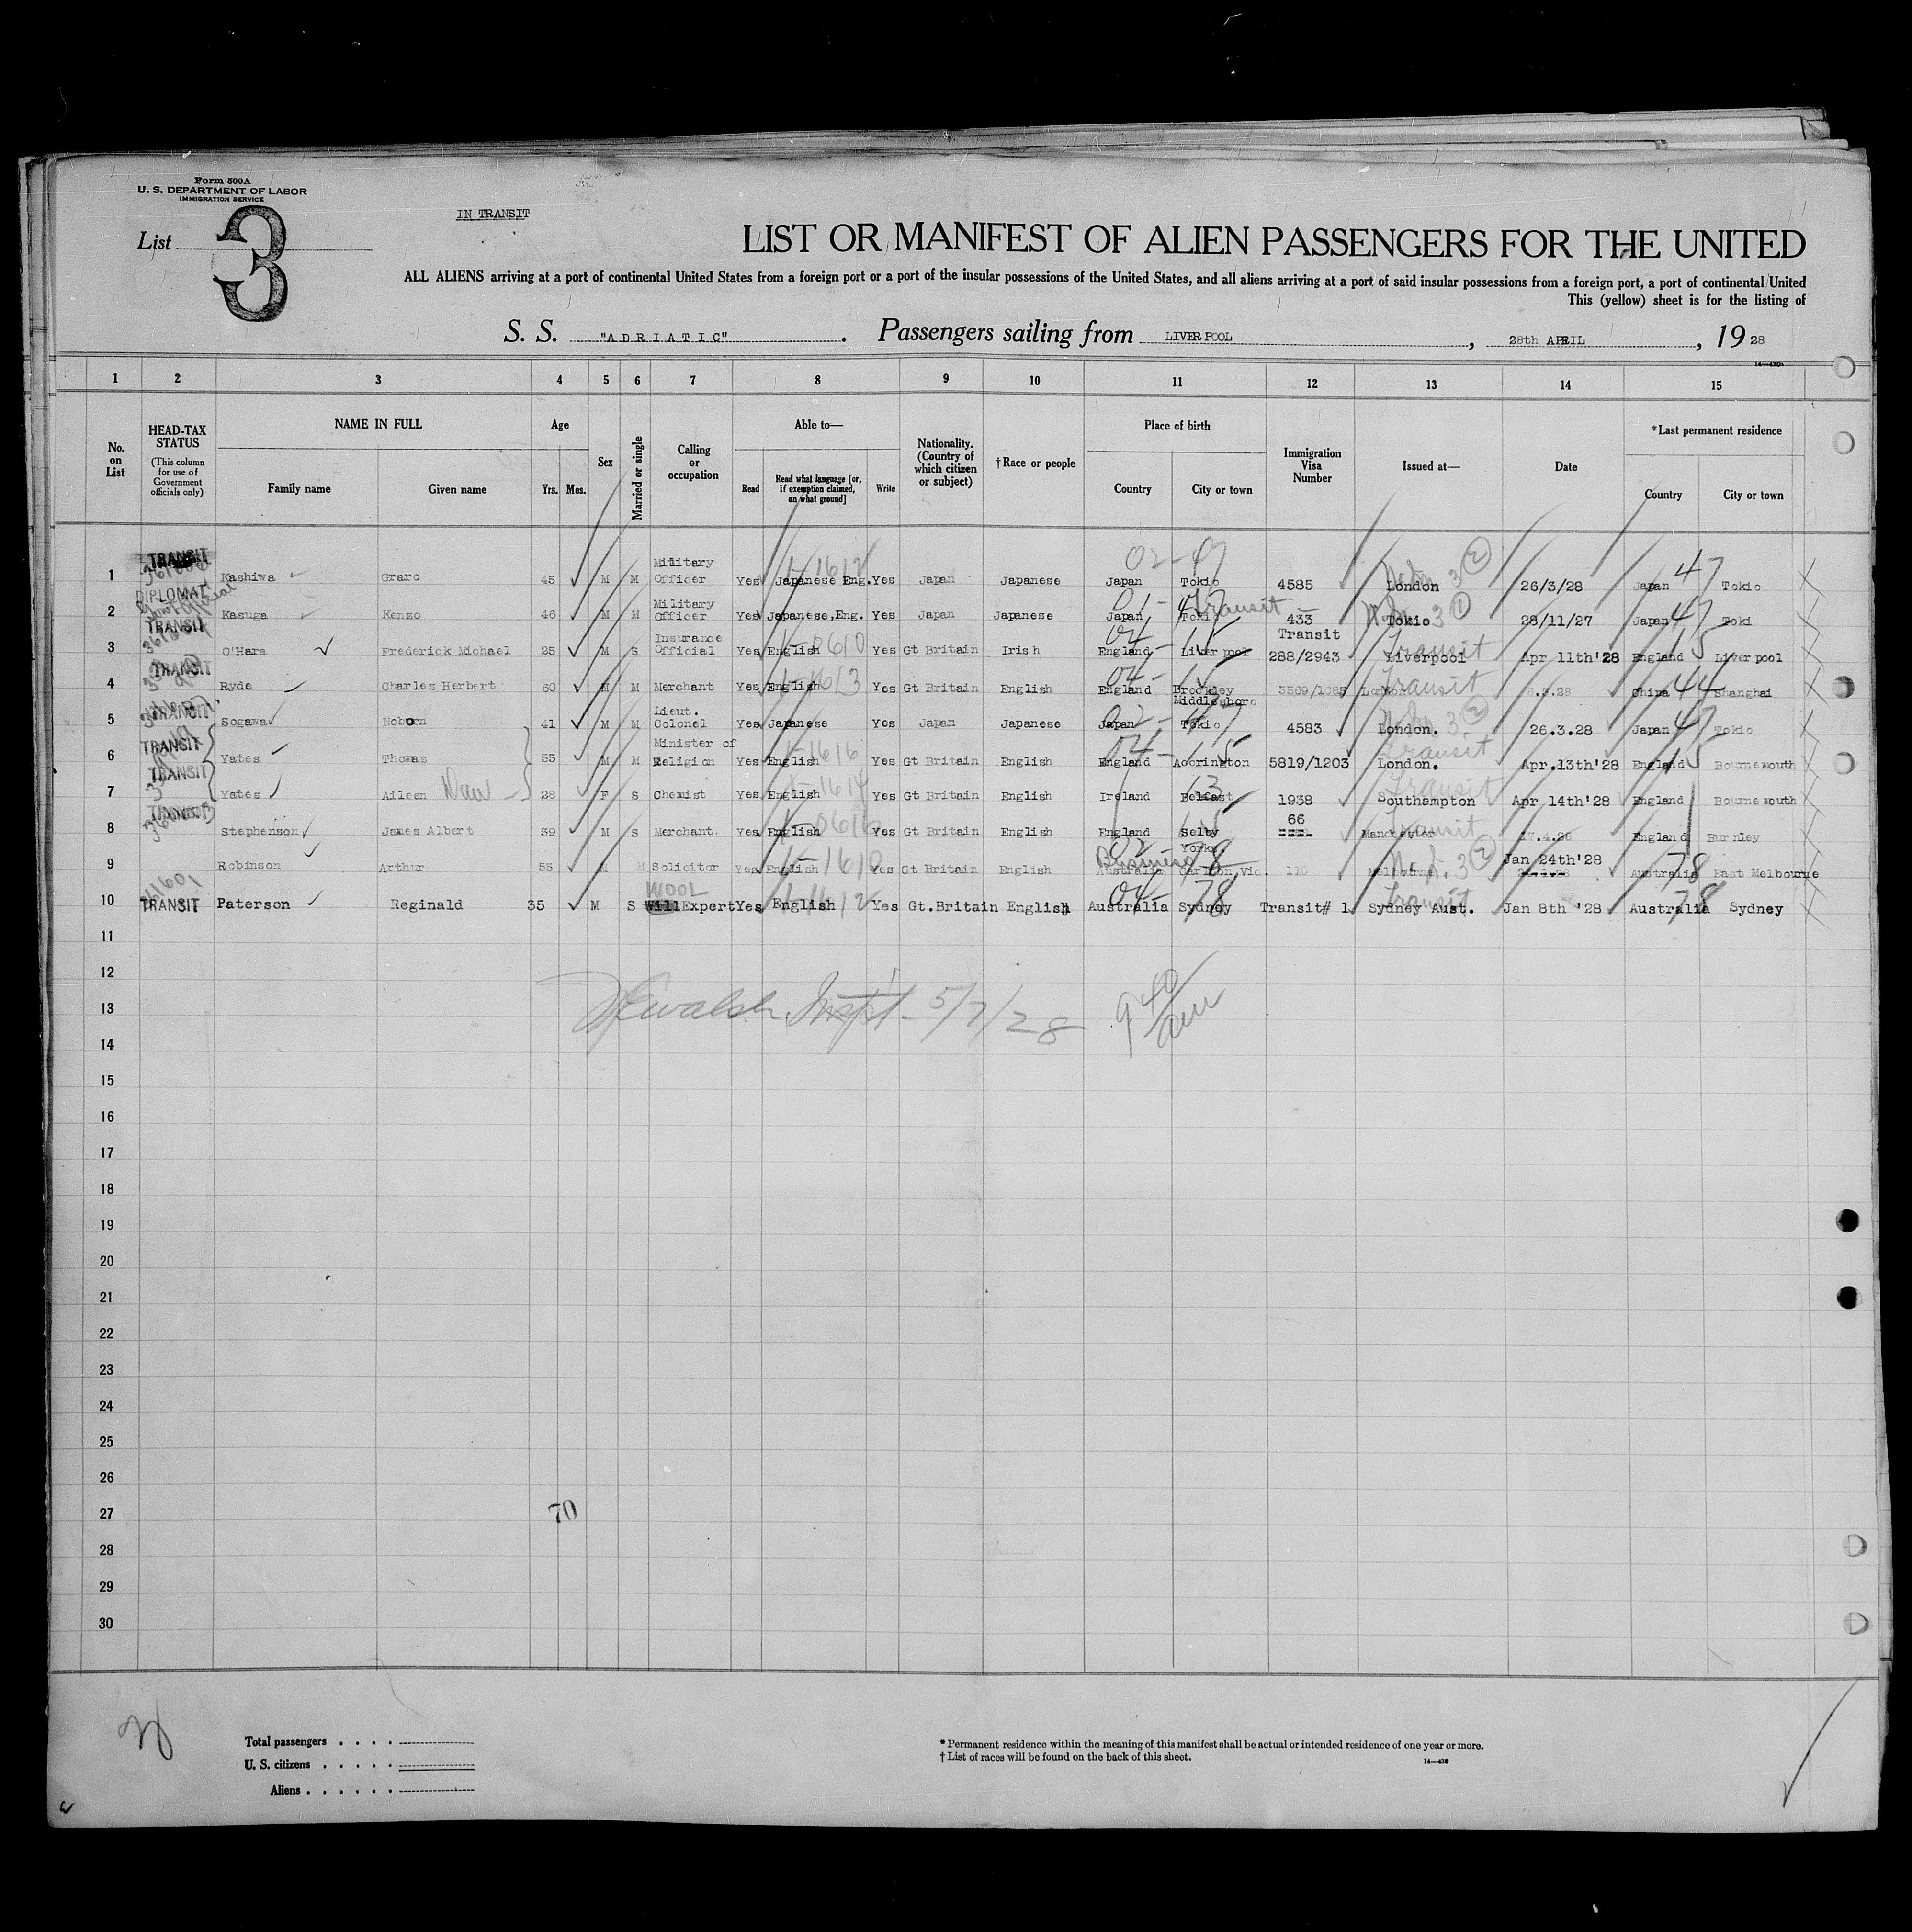 Form 500A
U. S. DEPARTMENT OF LABOR
IMMIGRATION SERVICE
List 3
IN TRANSIT
LIST OR MANIFEST OF ALIEN PASSENGERS FOR THE UNITED
ALL ALIENS arriving at a port of continental United States from a foreign port or a port of the insular possessions of the United States, and all aliens arriving at a port of said insular possessions from a foreign port, a port of continental United
This (yellow) sheet is for the listing of
S. S. "ADRIATIC". Passengers sailing from LIVERPOOL, 28th APRIL, 1928
1 2 3 4 5 6 7 8 9 10 11 12 13 14 15
No. on List
HEAD-TAX STATUS (This column for use of Government officials only)
NAME IN FULL Family name Given name
Age Yrs. Mos.
Sex
Married or single
Calling or occupation
Able to— Read Read what language [or, if exemption claimed, on what ground] Write
Nationality. (Country of which citizen or subject)
†Race or people
Place of birth Country City or town
Immigration Visa Number
Issued at—
Date
*Last permanent residence Country City or town
1 TRANSIT Kashiwa 45 M M Military Officer Yes Japanese Eng. Yes Japan Japanese Japan Tokio 02-47 4585 London 3 2 26/3/28 Japan 47 Tokio
2 DIPLOMAT Kasuga Kenzo 46 M M Military Officer Yes Japanese, Eng. Yes Japan Japanese Japan Tokio 01-47 Transit 433 Tokio 3 1 28/11/27 Japan 47 Toki
3 TRANSIT O'Hara Frederick Michael 25 M S Insurance Official Yes English Yes Gt Britain Irish England Liverpool 04-15 Transit 288/2943 Liverpool Transit Apr 11th'28 England 15 Liverpool
4 TRANSIT Ryde Charles Herbert 60 M M Merchant Yes English Yes Gt Britain English England Brockley 04-15 3569/1085 Transit 8.3.28 China 44 Shanghai
5 TRANSIT Sogawa 41 M M Lieut. Colonel Yes Japanese Yes Japan Japanese Japan Middlesboro Tokio 02-47 4583 London. 3 2 26.3.28 Japan 47 Tokio
6 TRANSIT Yates Thomas 55 M M Minister of Religion Yes English Yes Gt Britain English England Accrington 04-15 5819/1203 London. Transit Apr.13th'28 England 15 Bournemouth
7 TRANSIT Yates Aileen Dau 28 F S Chemist Yes English Yes Gt Britain English Ireland Belfast 13 1938 Southampton Transit Apr 14th'28 England Bournemouth
8 TRANSIT Stephenson James Albert 39 M S Merchant. Yes English Yes Gt Britain English England Selby Yorks. 15 66 Manchester Transit England Burnley
9 Robinson Arthur 55 M M Solicitor Yes English Yes Gt Britain English Business Australia Carlton, Vic. 02 78 110 Melbourne 3 2 Jan 24th'28 Australia 78 East Melbourne
10 TRANSIT Paterson Reginald 35 M S WOOL Expert Yes English Yes Gt.Britain English Australia Sydney 04-78 Transit# 1 Sydney Aust. Transit Jan 8th '28 Australia 78 Sydney
11
12
13
14
15
16
17
18
19
20
21
22
23
24
25
26
27
28
29
30
Walsh Inspt 5/7/28 9 40/am
70
Total passengers
U. S. citizens
Aliens
* Permanent residence within the meaning of this manifest shall be actual or intended residence of one year or more.
† List of races will be found on the back of this sheet.